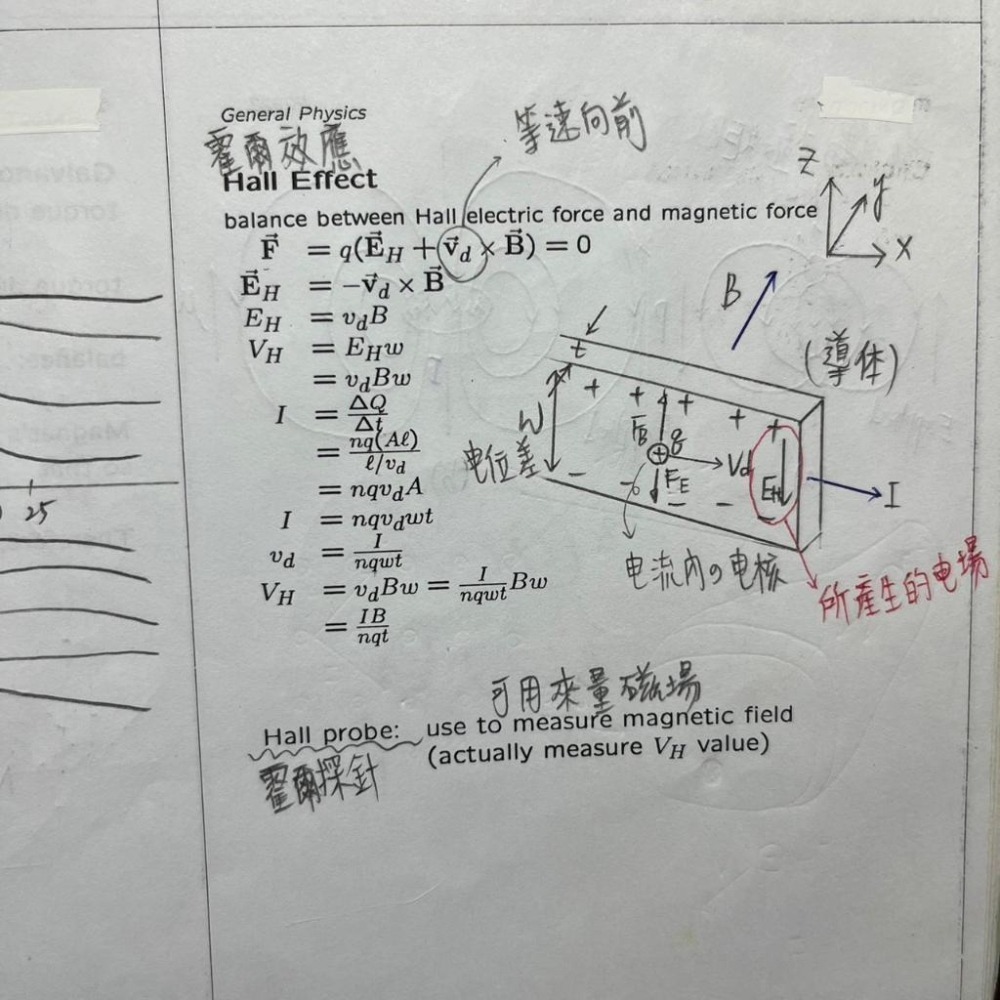 General Physics
等速向前
霍爾效應
Hall Effect
balance between Hall electric force and magnetic force
F⃗ = q(E⃗_H + v⃗_d × B⃗) = 0
E⃗_H = −v⃗_d × B⃗
E_H = v_d B
V_H = E_H w
= v_d Bw
I = ΔQ/Δt
= nq(Aℓ)/(ℓ/v_d)
= nqv_d A
I = nqv_d wt
v_d = I/(nqwt)
V_H = v_d Bw = I/(nqwt) Bw
= IB/(nqt)
Z
y
X
B
(導体)
t
+ + + + +
W
电位差
F_B
q
⊕
V_d
F_E
E_H
− − − −
I
电流内の电核
所產生的电場
可用來量磁場
Hall probe: use to measure magnetic field
(actually measure V_H value)
霍爾探針
25